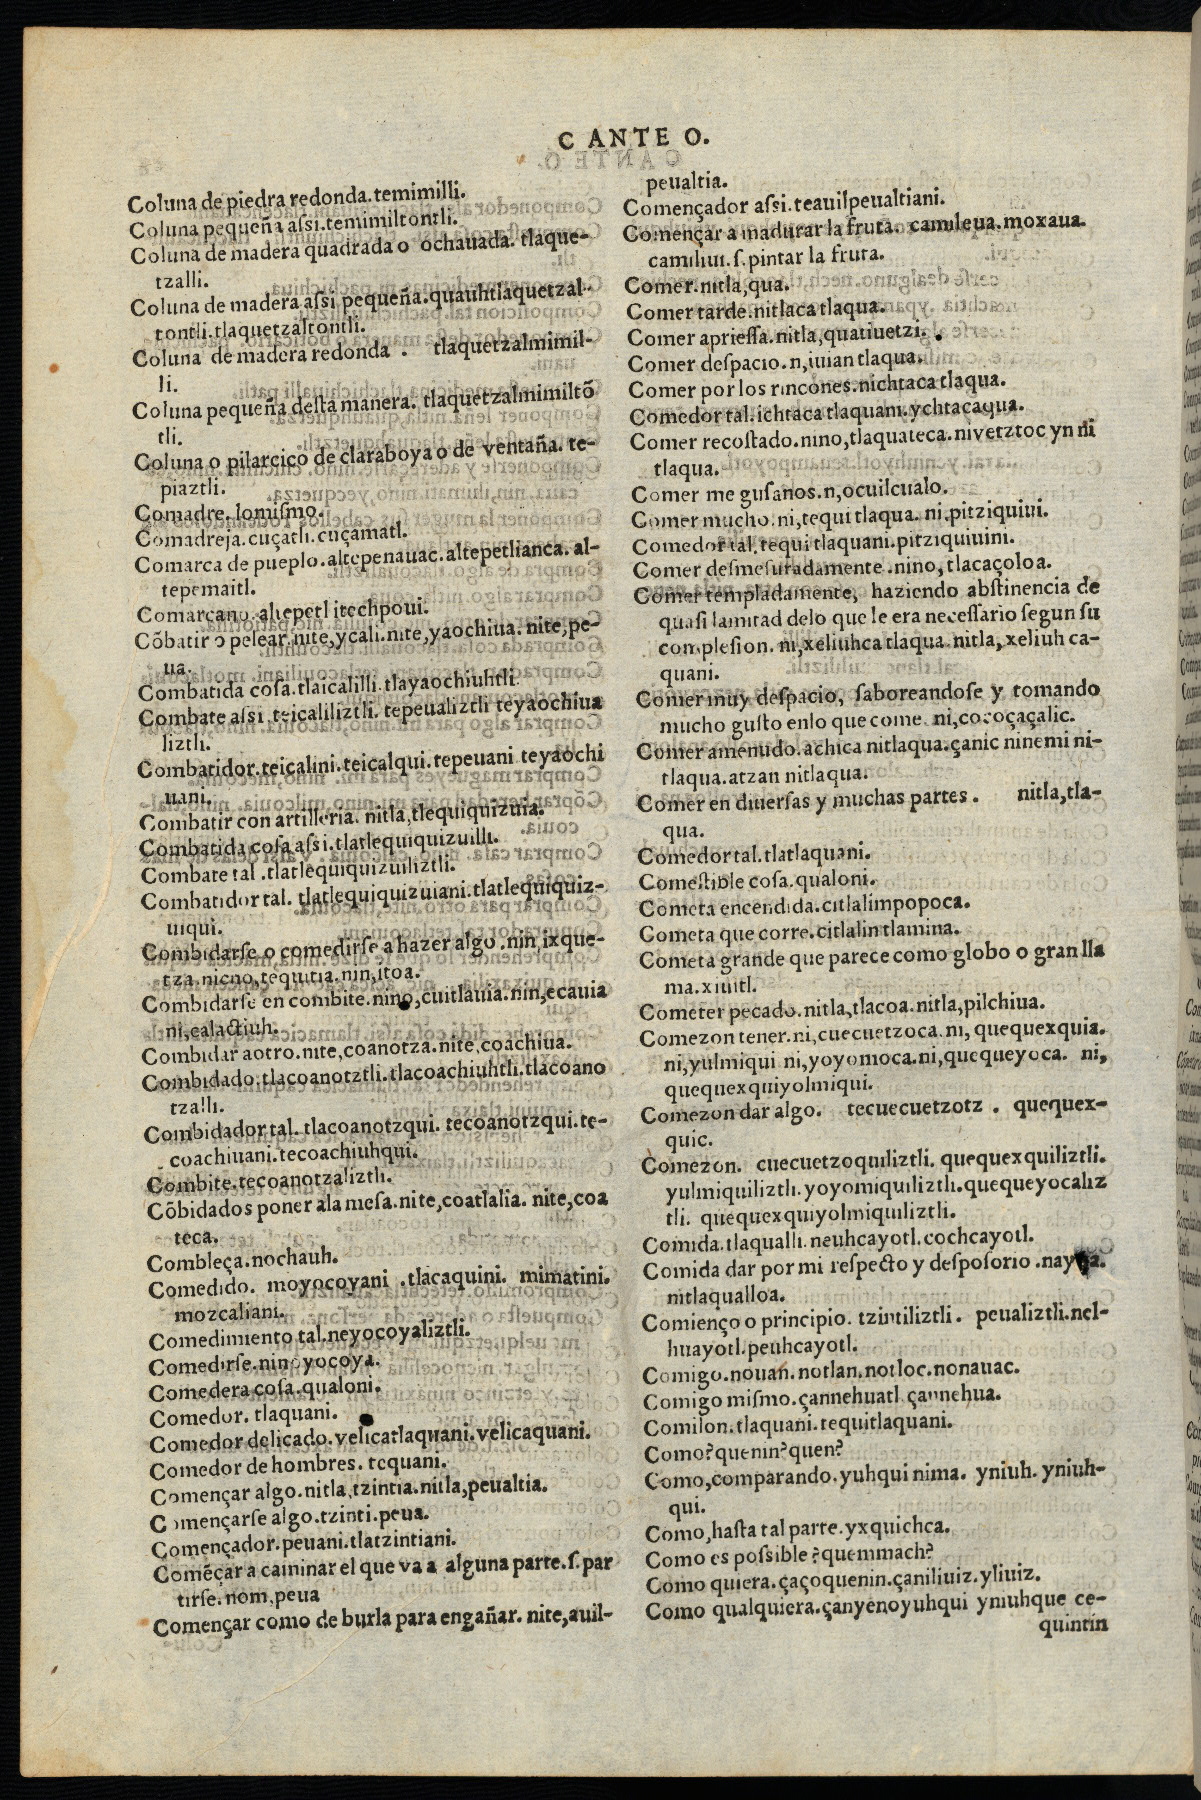 C ANTE O.
Coluna de piedra redonda.temimilli.
Coluna pequeña aſsi.temimiltontli.
Coluna de madera quadrada o ochauada. tlaque-
tzalli.
Coluna de madera aſsi pequeña.quauhtlaquetzal-
tontli.tlaquetzaltontli.
Coluna de madera redonda . tlaquetzalmimil-
li.
Coluna pequeña deſta manera. tlaquetzalmimiltõ
tli.
Coluna o pilarcico de claraboya o de ventaña. te-
piaztli.
Comadre. lomiſmo.
Comadreja.cuçatli.cuçamatl.
Comarca de pueplo.altepenauac.altepetlianca. al-
tepemaitl.
Comarcano.altepetl itechpoui.
Cõbatir o pelear.nite,ycali.nite,yaochiua. nite,pe-
ua.
Combatida coſa.tlaicalilli.tlayaochiuhtli.
Combate aſsi.teicaliliztli. tepeualiztli teyaochiua
liztli.
Combatidor.teicalini.teicalqui.tepeuani teyaochi
uani.
Combatir con artilleria. nitla,tlequiquizuia.
Combatida coſa aſsi.tlatlequiquizuilli.
Combate tal .tlatlequiquizuiliztli.
Combatidor tal. tlatlequiquizuiani.tlatlequiquiz-
uiqui.
Combidarſe o comedirſe a hazer algo .nin,ixque-
tza.nicno,tequitia.nin,itoa.
Combidarſe en combite.nino,cuitlauia.nin,ecauia
ni,calactiuh.
Combidar aotro.nite,coanotza.nite,coachiua.
Combidado.tlacoanotztli.tlacoachiuhtli.tlacoano
tzalli.
Combidador tal. tlacoanotzqui. tecoanotzqui.te-
coachiuani.tecoachiuhqui.
Combite.tecoanotzaliztli.
Cõbidados poner ala meſa.nite,coatlalia. nite,coa
teca.
Combleça.nochauh.
Comedido. moyocoyani .tlacaquini. mimatini.
mozcaliani.
Comedimiento tal.neyocoyaliztli.
Comedirſe.nino yocoya.
Comedera coſa.qualoni.
Comedor. tlaquani.
Comedor delicado.velicatlaquani.velicaquani.
Comedor de hombres. tequani.
Començar algo.nitla,tzintia.nitla,peualtia.
Començarſe algo.tzinti.peua.
Començador.peuani.tlatzintiani.
Comẽçar a caminar el que va a alguna parte.ſ.par
tirſe.nom,peua
Començar como de burla para engañar. nite,auil-
peualtia.
Començador aſsi.teauilpeualtiani.
Començar a madurar la fruta. camileua.moxaua
camiliui.ſ.pintar la fruta.
Comer.nitla,qua.
Comer tarde.nitlaca tlaqua.
Comer aprieſſa.nitla,quatiuetzi.
Comer deſpacio.n,iuian tlaqua.
Comer por los rincones.nichtaca tlaqua.
Comedor tal.ichtaca tlaquani.ychtacaqua.
Comer recoſtado.nino,tlaquateca.nivetztoc yn ni
tlaqua.
Comer me guſanos.n,ocuilcualo.
Comer mucho.ni,tequi tlaqua. ni.pitziquiui.
Comedor tal.tequi tlaquani.pitziquiuini.
Comer desmeſuradamente.nino,tlacaçoloa.
Comer templadamente, haziendo abſtinencia de
quaſi lamitad delo que le era neceſſario ſegun ſu
complesion. ni,xeliuhca tlaqua.nitla,xeliuh ca-
quani.
Comer muy deſpacio, ſaboreandoſe y tomando
mucho guſto enlo que come. ni,cocoçaçalic.
Comer amenudo.achica nitlaqua.çanic ninemi ni-
tlaqua.atzan nitlaqua.
Comer en diuerſas y muchas partes . nitla,tla-
qua.
Comedor tal.tlatlaquani.
Comeſtible coſa.qualoni.
Cometa encendida.citlalimpopoca.
Cometa que corre.citlalin tlamina.
Cometa grande que parece como globo o gran lla
ma.xiuitl.
Cometer pecado.nitla,tlacoa.nitla,pilchiua.
Comezon tener.ni,cuecuetzoca.ni, quequexquia.
ni,yulmiqui ni,yoyomoca.ni,quequeyoca. ni,
quequexquiyolmiqui.
Comezon dar algo. tecuecuetzotz . quequex-
quic.
Comezon. cuecuetzoquiliztli. quequexquiliztli.
yulmiquiliztli.yoyomiquiliztli.quequeyocaliz
tli. quequexquiyolmiquiliztli.
Comida.tlaqualli.neuhcayotl.cochcayotl.
Comida dar por mi reſpecto y deſpoſorio.
nitlaqualloa.
Comienço o principio. tzintiliztli. peualiztli.nel-
huayotl.peuhcayotl.
Comigo.nouan.notlan.notloc.nonauac.
Comigo miſmo.çannehuatl çannehua.
Comilon.tlaquani.tequitlaquani.
Como?quenin?quen?
Como,comparando.yuhqui nima. yniuh. yniuh-
qui.
Como,haſta tal parte.yxquichca.
Como es poſsible?quemmach?
Como quiera.çaçoquenin.çaniliuiz.yliuiz.
Como qualquiera.çanyenoyuhqui yniuhque ce-
quintin